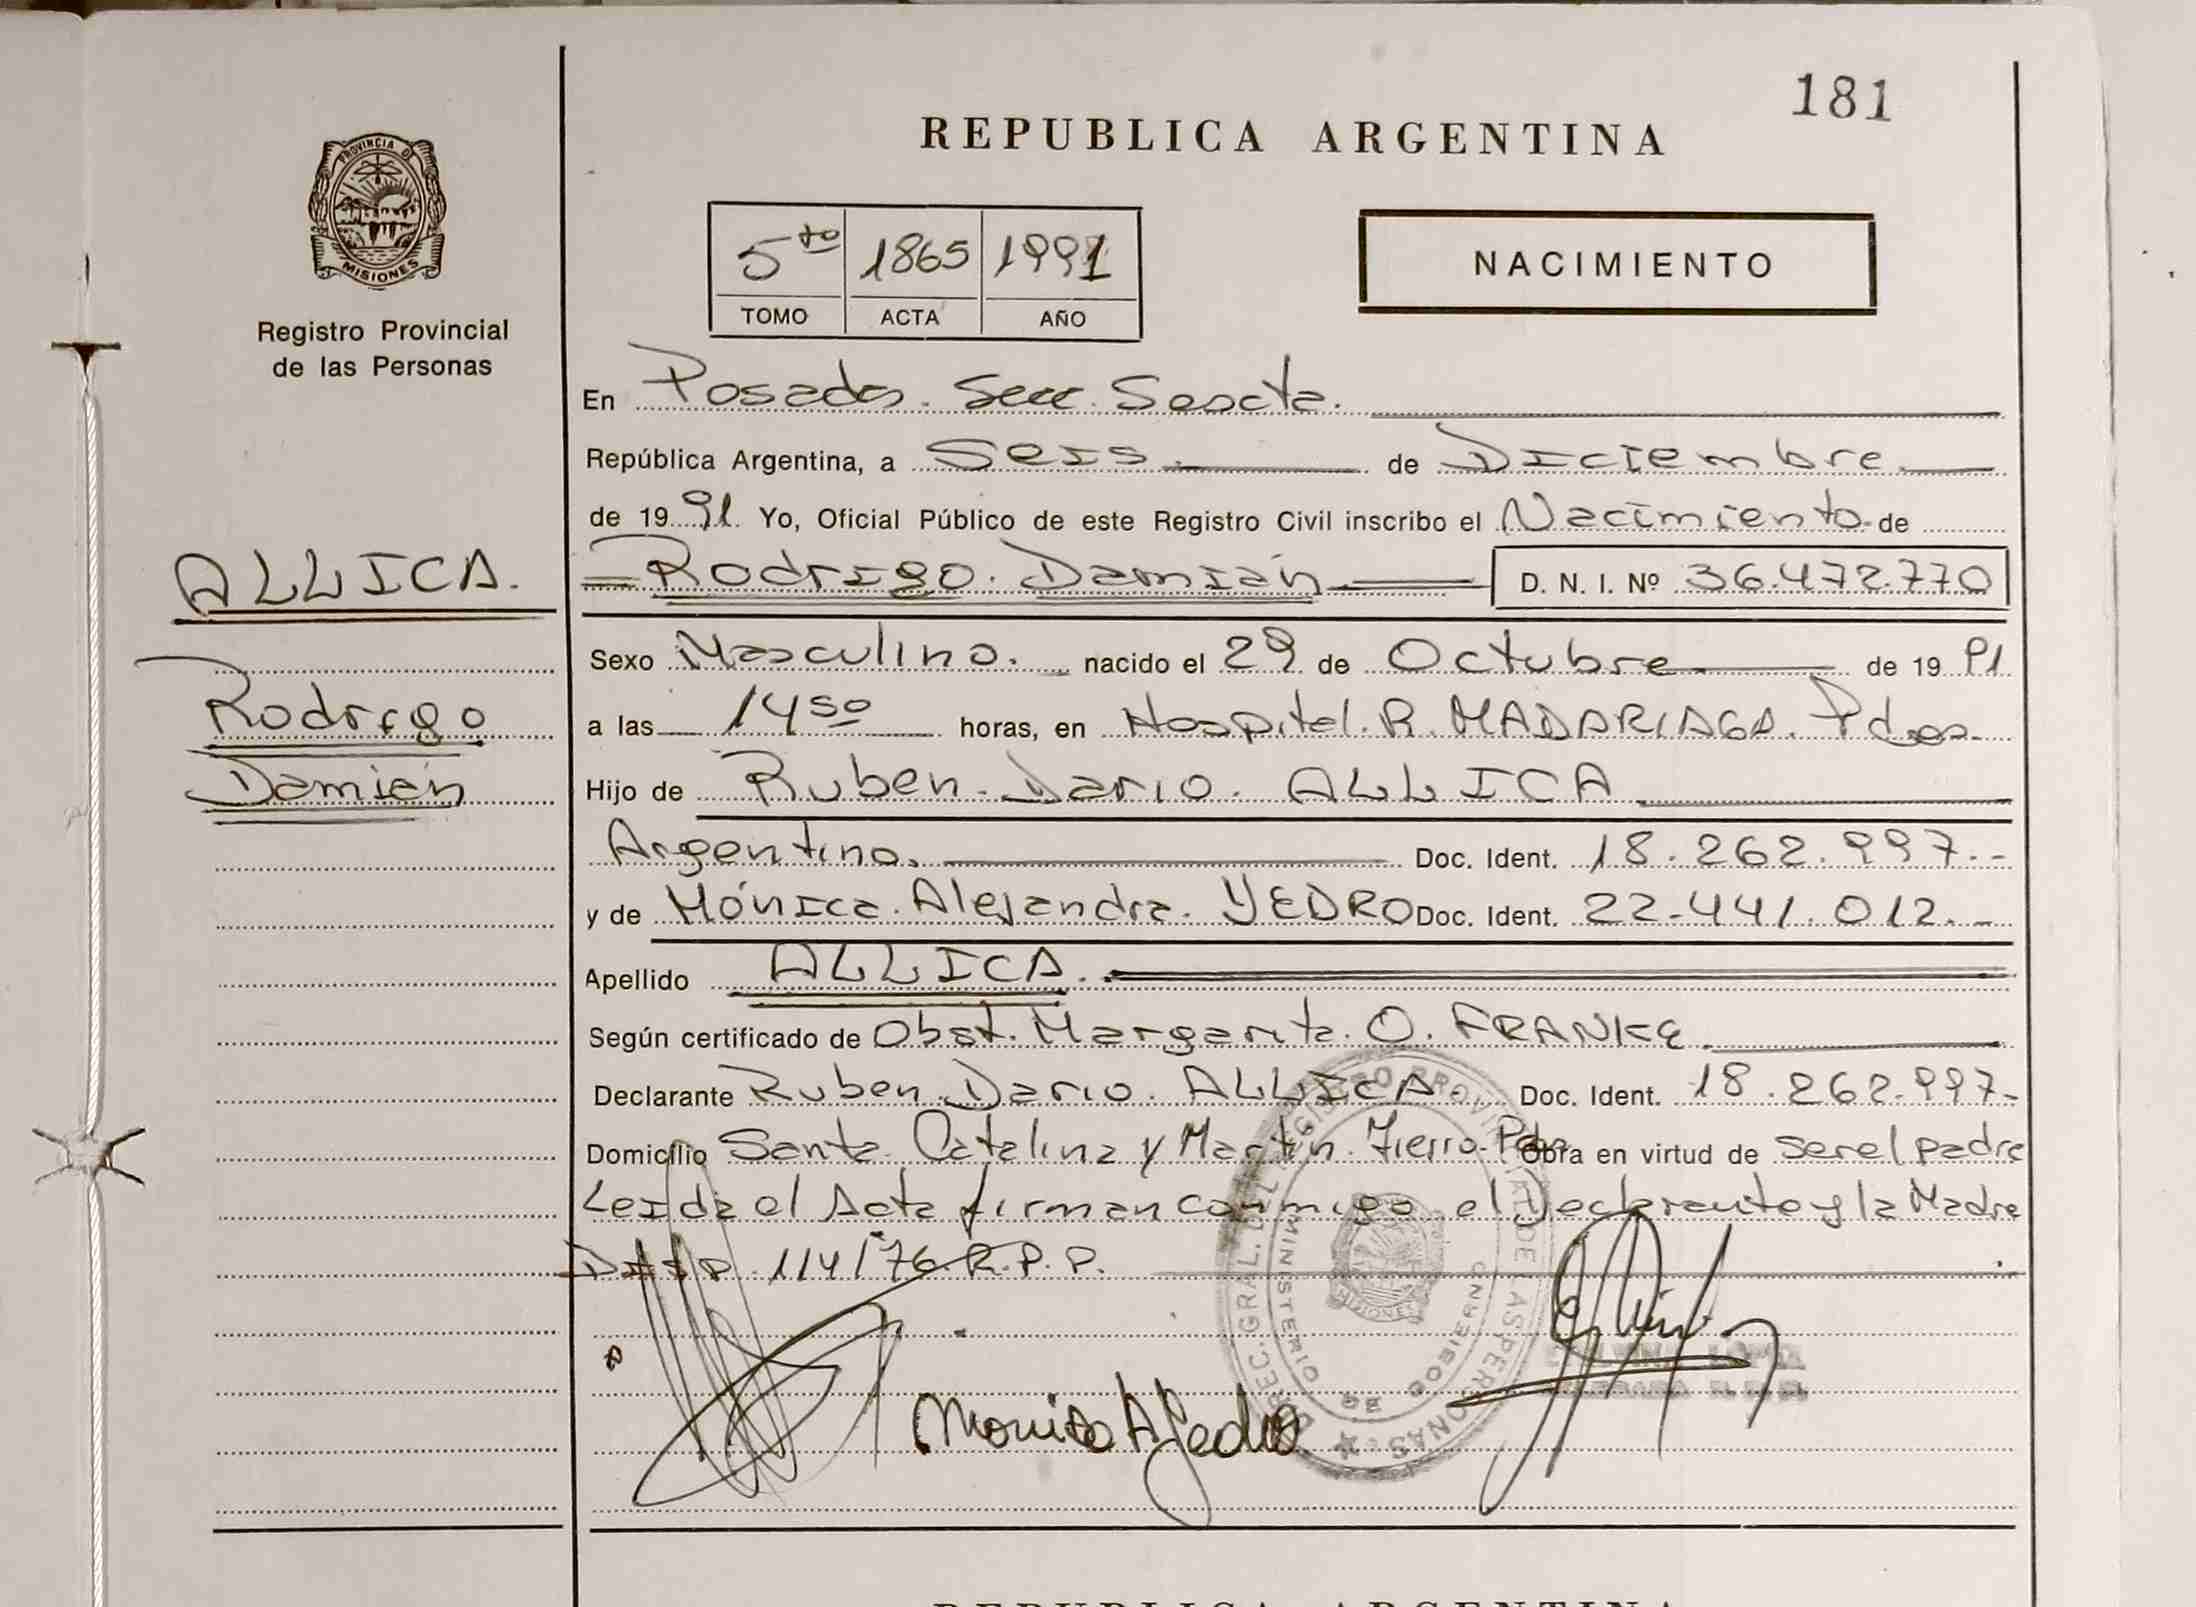 181
REPUBLICA ARGENTINA
PROVINCIA DE
MISIONES
Registro Provincial
de las Personas
5to 1865 1991
TOMO ACTA AÑO
NACIMIENTO
En Posadas. Secc. Sescta.
República Argentina, a Seis. de Diciembre.
de 1991. Yo, Oficial Público de este Registro Civil inscribo el Nacimiento de
ALLICA.
Rodrigo
Damián
Rodrigo. Damián D. N. I. Nº 36.472.770
Sexo Masculino. nacido el 29 de Octubre de 1991
a las 14 50 horas, en Hospital. R. MADARIAGA. Pdas.
Hijo de Ruben. Dario. ALLICA
Argentino. Doc. Ident. 18.262.997.-
y de Mónica. Alejandra. YEDRO Doc. Ident. 22.441.012.-
Apellido ALLICA.
Según certificado de Obst. Margarita. O. FRANKE
Declarante Ruben Dario. ALLICA. Doc. Ident. 18.262.997-
Domicilio Santa Catalina y Martín Fierro. Pdas Obra en virtud de ser el padre
Leida el Acta firman conmigo el Declarante y la Madre
114/76 R.P.P.
Monica A Yedro
DIREC. GRAL. DEL REGISTRO PROVINCIAL DE LAS PERSONAS
MINISTERIO DE GOBIERNO
MISIONES
REPUBLICA ARGENTINA